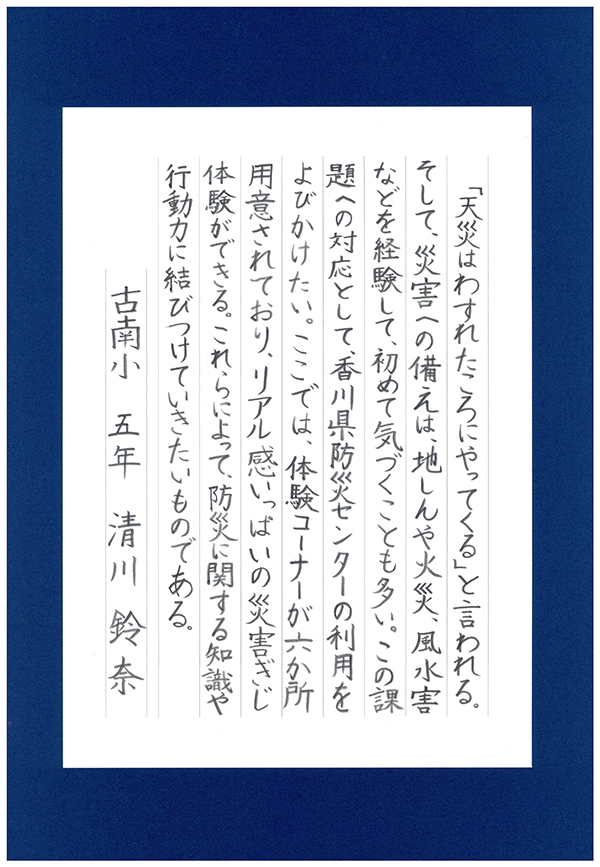 「天災はわすれたころにやってくる」と言われる。
そして、災害への備えは、地しんや火災、風水害
などを経験して、初めて気づくことも多い。この課
題への対応として、香川県防災センターの利用を
よびかけたい。ここでは、体験コーナーが六か所
用意されており、リアル感いっぱいの災害ぎじ
体験ができる。これらによって、防災に関する知識や
行動力に結びつけていきたいものである。
古南小 五年 清川 鈴奈